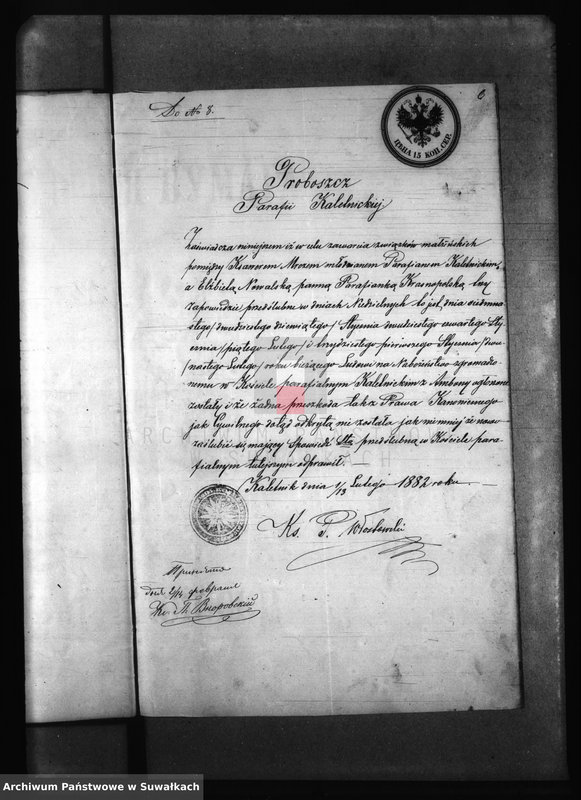 Do № 8.
6
ЦѢНА 15 КОП. СЕР.
Proboszcz
Parafii Kaletnickiej
Zaświadcza niniejszem iż w celu zawarcia związków małżeńskich
pomiędzy Ksawerem Mrozem młodzianem Parafianem Kaletnickim,
a Elżbietą Nowalską panną Parafianką Krasnopolską trzy
Zapowiedzie przedślubne w dniach Niedzielnych to jest, dnia siedmna
stego /dwudziestego dziewiątego/ Stycznia dwudziestego czwartego Sty-
cznia /piątego Lutego/ i trzydziestego pierwszego Stycznia /dwu-
nastego Lutego/ roku bieżącego Ludowi na Nabożeństwo zgromadzo
nemu w Kościele parafialnym Kaletnickim z Ambony ogłoszone
zostały i że żadna przeszkoda tak z Prawa Kanonicznego
jak Cywilnego dotąd odkrytą nie została jak niemniej że nowo
zaślubić się mający Spowiedź Stą przedślubną w Kościele para
fialnym tutejszym odprawił.
Kaletnik dnia 1/13 Lutego 1882 roku
Ks. P.
Принято
дня 2/14 февраля
Кс.
Archiwum Państwowe w Suwałkach